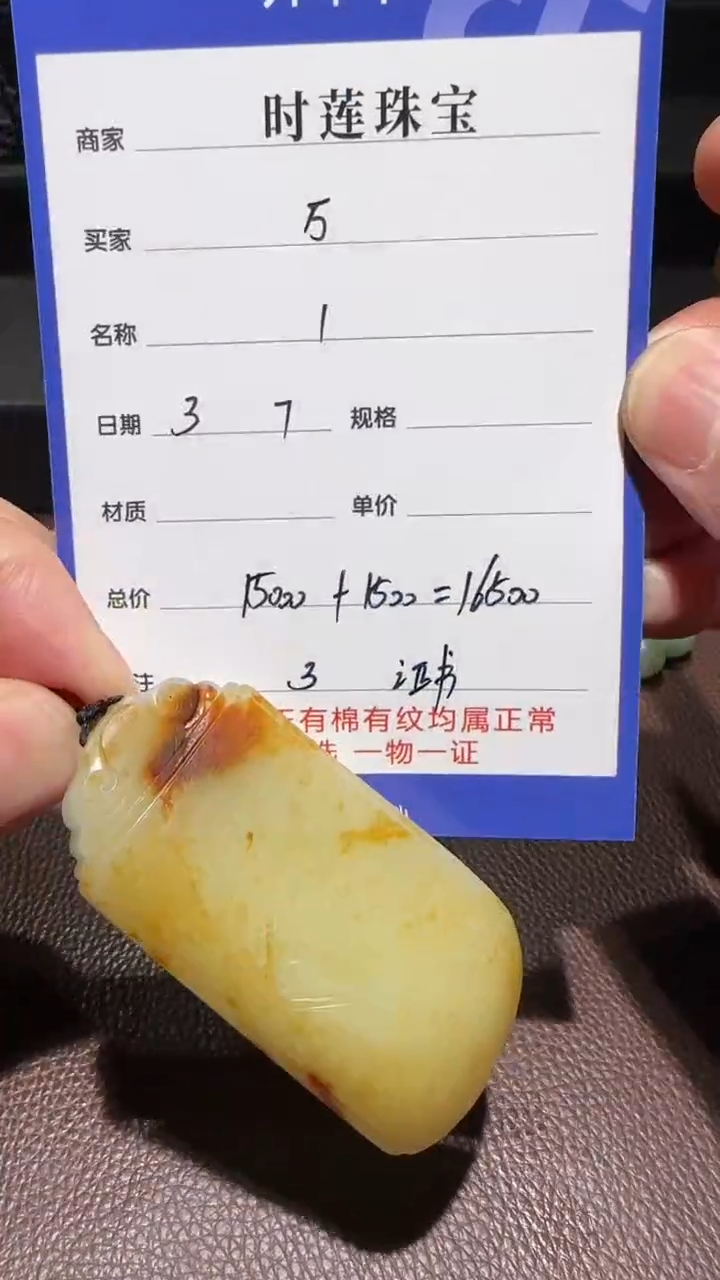 商家 时莲珠宝
买家 万
名称 1
日期 3 7 规格
材质 单价
总价 15000+1500=16500
注 3 证书
有棉有纹均属正常
一物一证